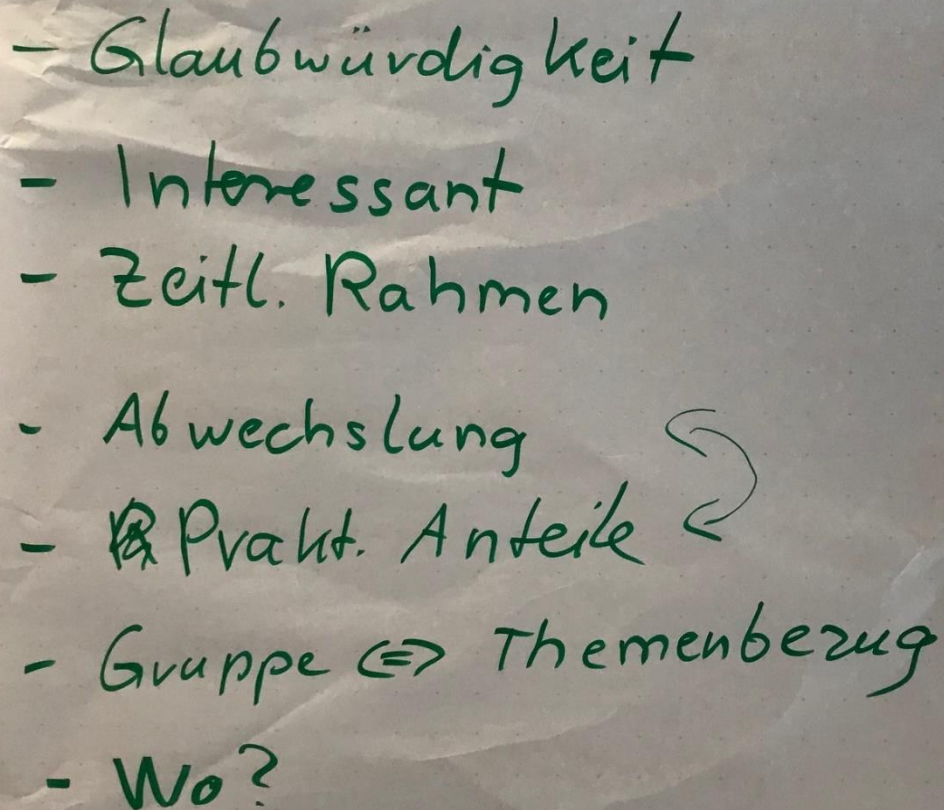 - Glaubwürdigkeit
- Interessant
- Zeitl. Rahmen
- Abwechslung
- Prakt. Anteile
- Gruppe ⇔ Themenbezug
- Wo?